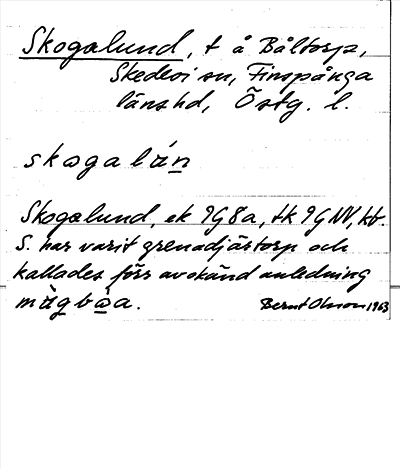 Skogalund, t å Båltorp,
Skedevi sn, Finspånga
länshd, Östg. l.
skogalán̲
Skogalund, ek 9G8a, tk 9G NV, kb.
S. har varit grenadjärtorp och
kallades förr av okänd anledning
Bernt Olsson 1963